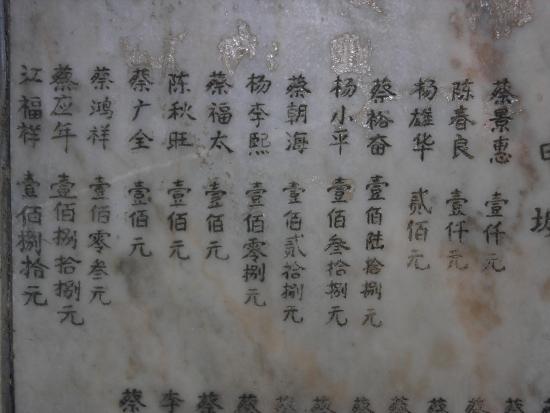 蔡景惠 壹仟元
陈春良 壹仟元
杨雄华 贰佰元
蔡裕奋 壹佰陆拾捌元
杨小平 壹佰叁拾捌元
蔡朝海 壹佰贰拾捌元
杨李熙 壹佰零捌元
蔡福太 壹佰元
陈秋旺 壹佰元
蔡广全 壹佰元
蔡鸿祥 壹佰零叁元
蔡应年 壹佰捌拾捌元
江福祥 壹佰捌拾元
蔡
蔡
李
蔡